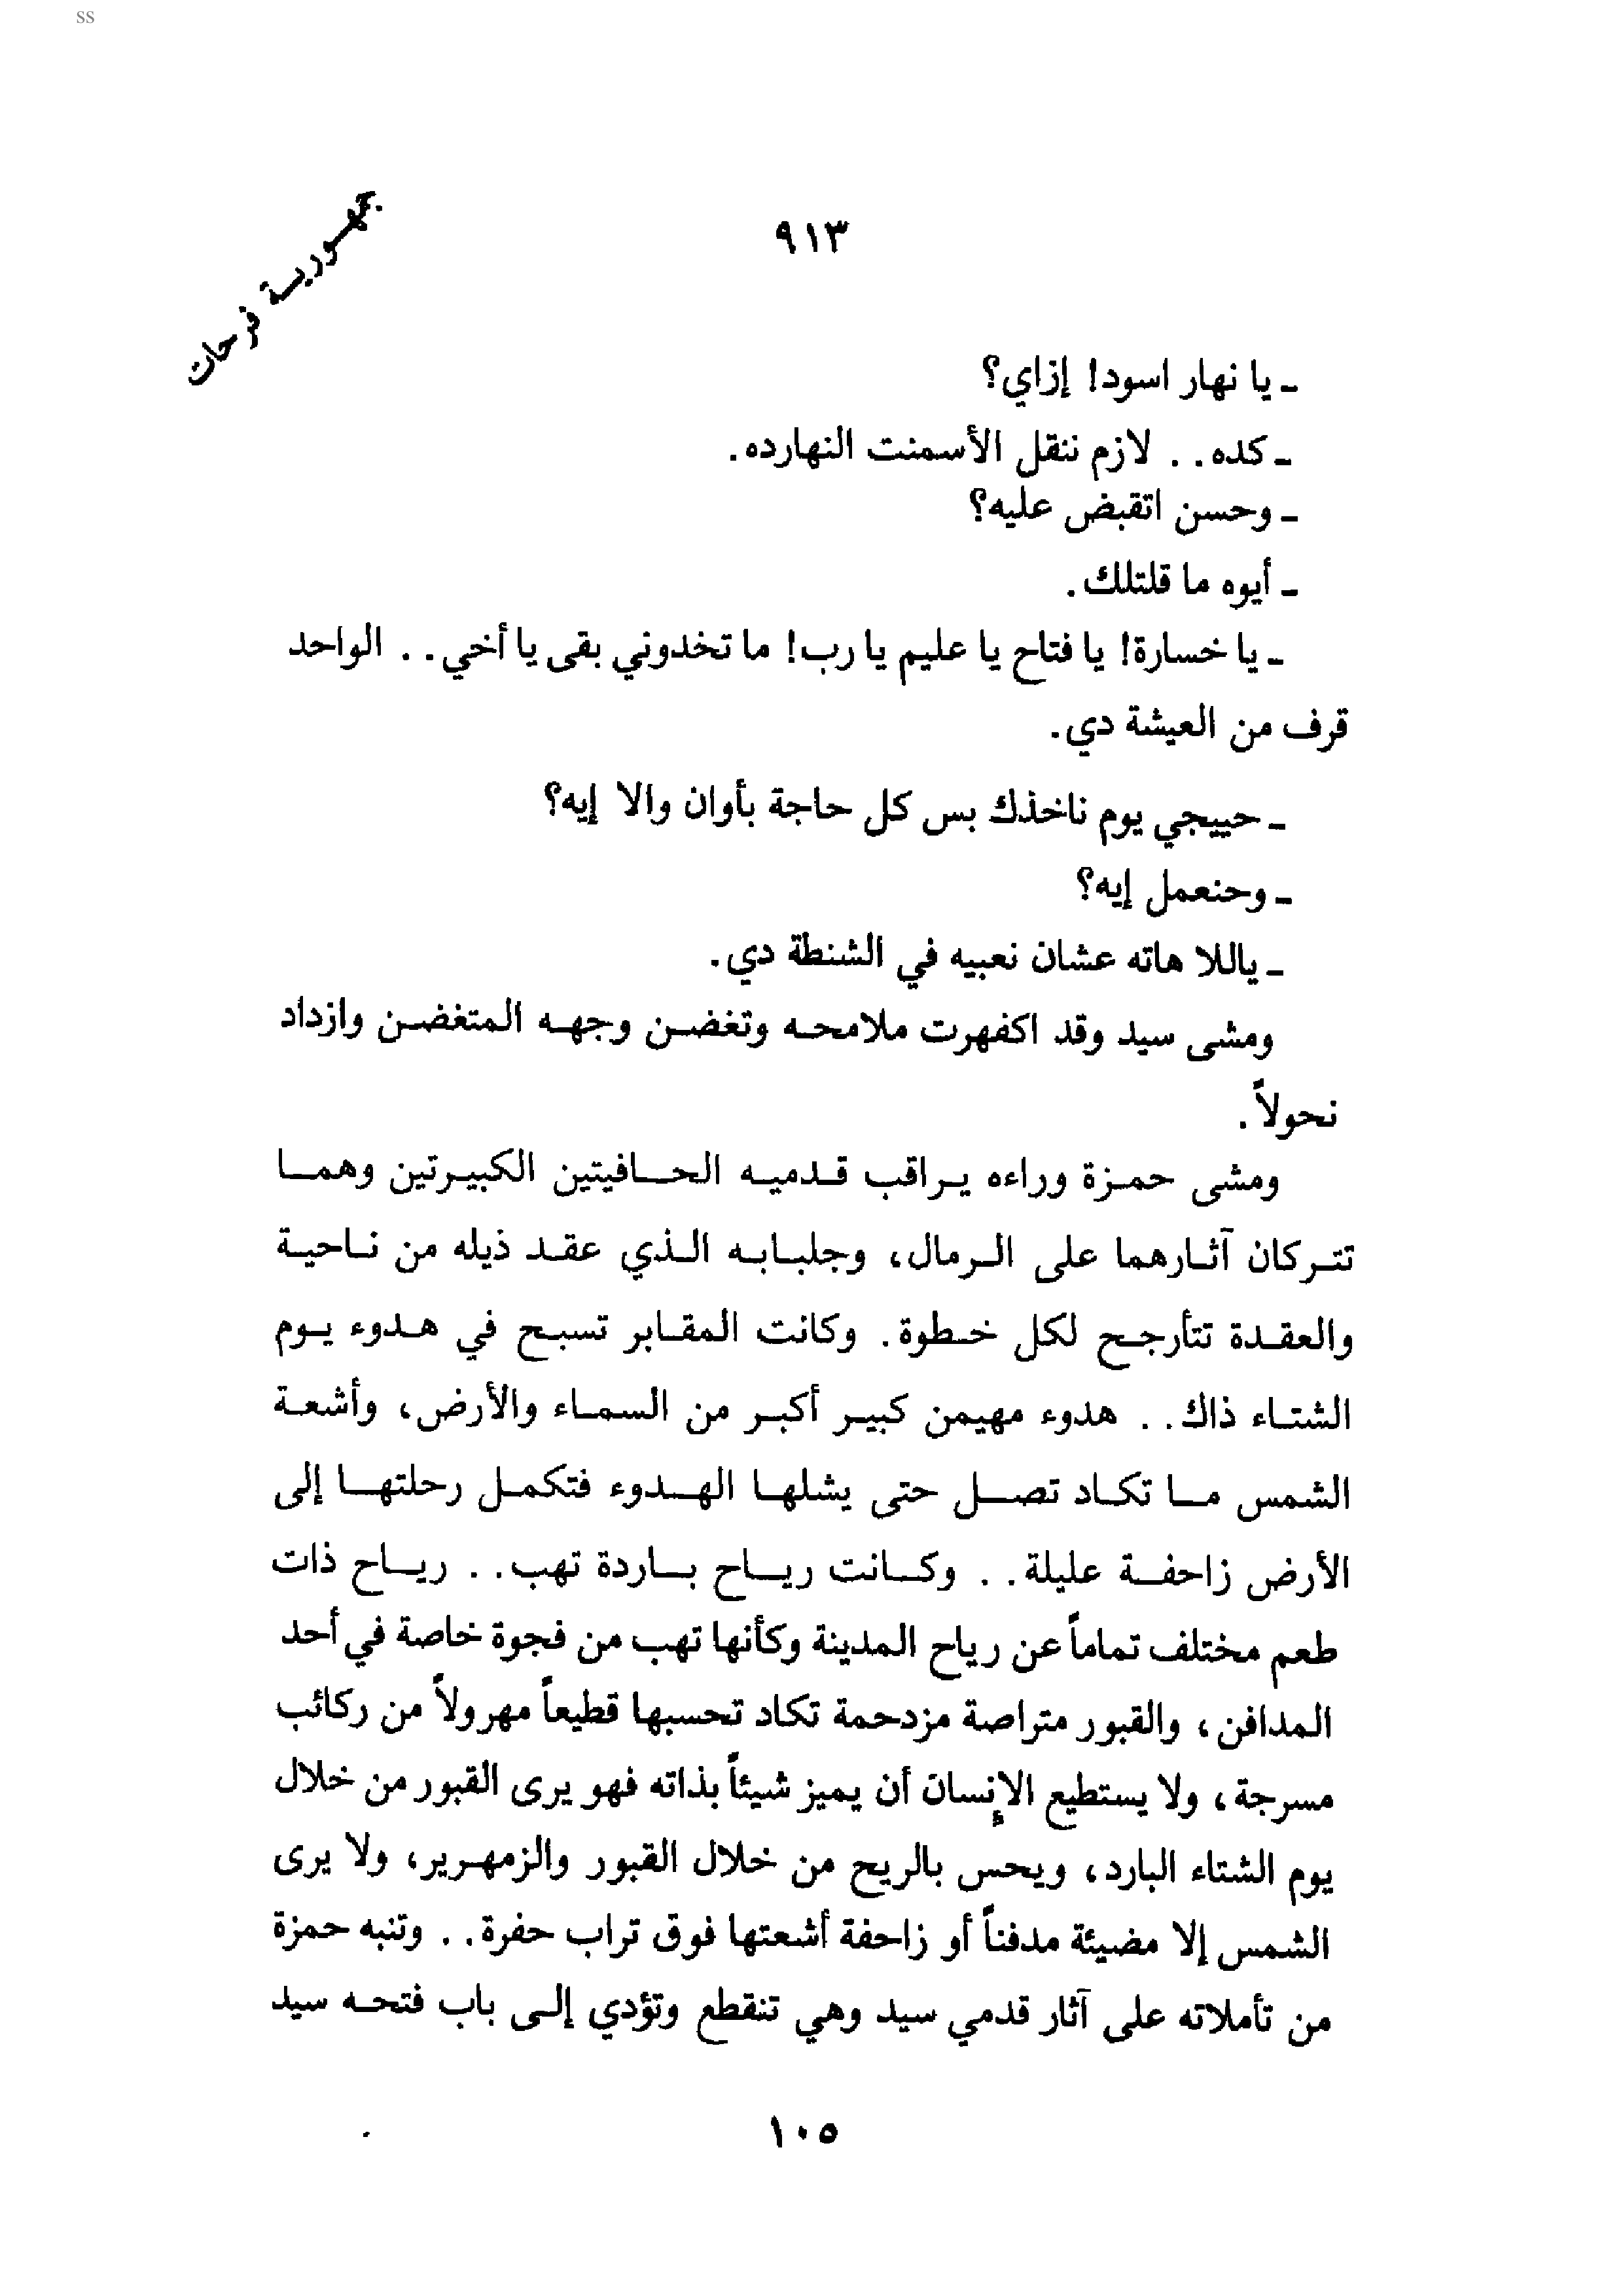 ss
٩١٣
جمهورية فرحات
ـ يا نهار اسود! إزاي؟
ـ كده.. لازم ننقل الأسمنت النهارده.
ـ وحسن اتقبض عليه؟
ـ أيوه ما قلتلك.
ـ يا خسارة! يا فتاح يا عليم يا رب! ما تخدوني بقى يا أخي.. الواحد
قرف من العيشة دي.
ـ حييجي يوم ناخذك بس كل حاجة بأوان والا إيه؟
ـ وحنعمل إيه؟
ـ ياللا هاته عشان نعبيه في الشنطة دي.
ومشى سيد وقد اكفهرت ملامحه وتغضن وجهه المتغضن وازداد
نحولاً.
ومشى حمزة وراءه يراقب قدميه الحافيتين الكبيرتين وهما
تتركان آثارهما على الرمال، وجلبابه الذي عقد ذيله من ناحية
والعقدة تتأرجح لكل خطوة. وكانت المقابر تسبح في هدوء يوم
الشتاء ذاك.. هدوء مهيمن كبير أكبر من السماء والأرض، وأشعة
الشمس ما تكاد تصل حتى يشلها الهدوء فتكمل رحلتها إلى
الأرض زاحفة عليلة.. وكانت رياح باردة تهب.. رياح ذات
طعم مختلف تماماً عن رياح المدينة وكأنها تهب من فجوة خاصة في أحد
المدافن، والقبور متراصة مزدحمة تكاد تحسبها قطيعاً مهرولاً من ركائب
مسرجة، ولا يستطيع الإنسان أن يميز شيئاً بذاته فهو يرى القبور من خلال
يوم الشتاء البارد، ويحس بالريح من خلال القبور والزمهرير، ولا يرى
الشمس إلا مضيئة مدفناً أو زاحفة أشعتها فوق تراب حفرة.. وتنبه حمزة
من تأملاته على آثار قدمي سيد وهي تنقطع وتؤدي إلى باب فتحه سيد
١٠٥